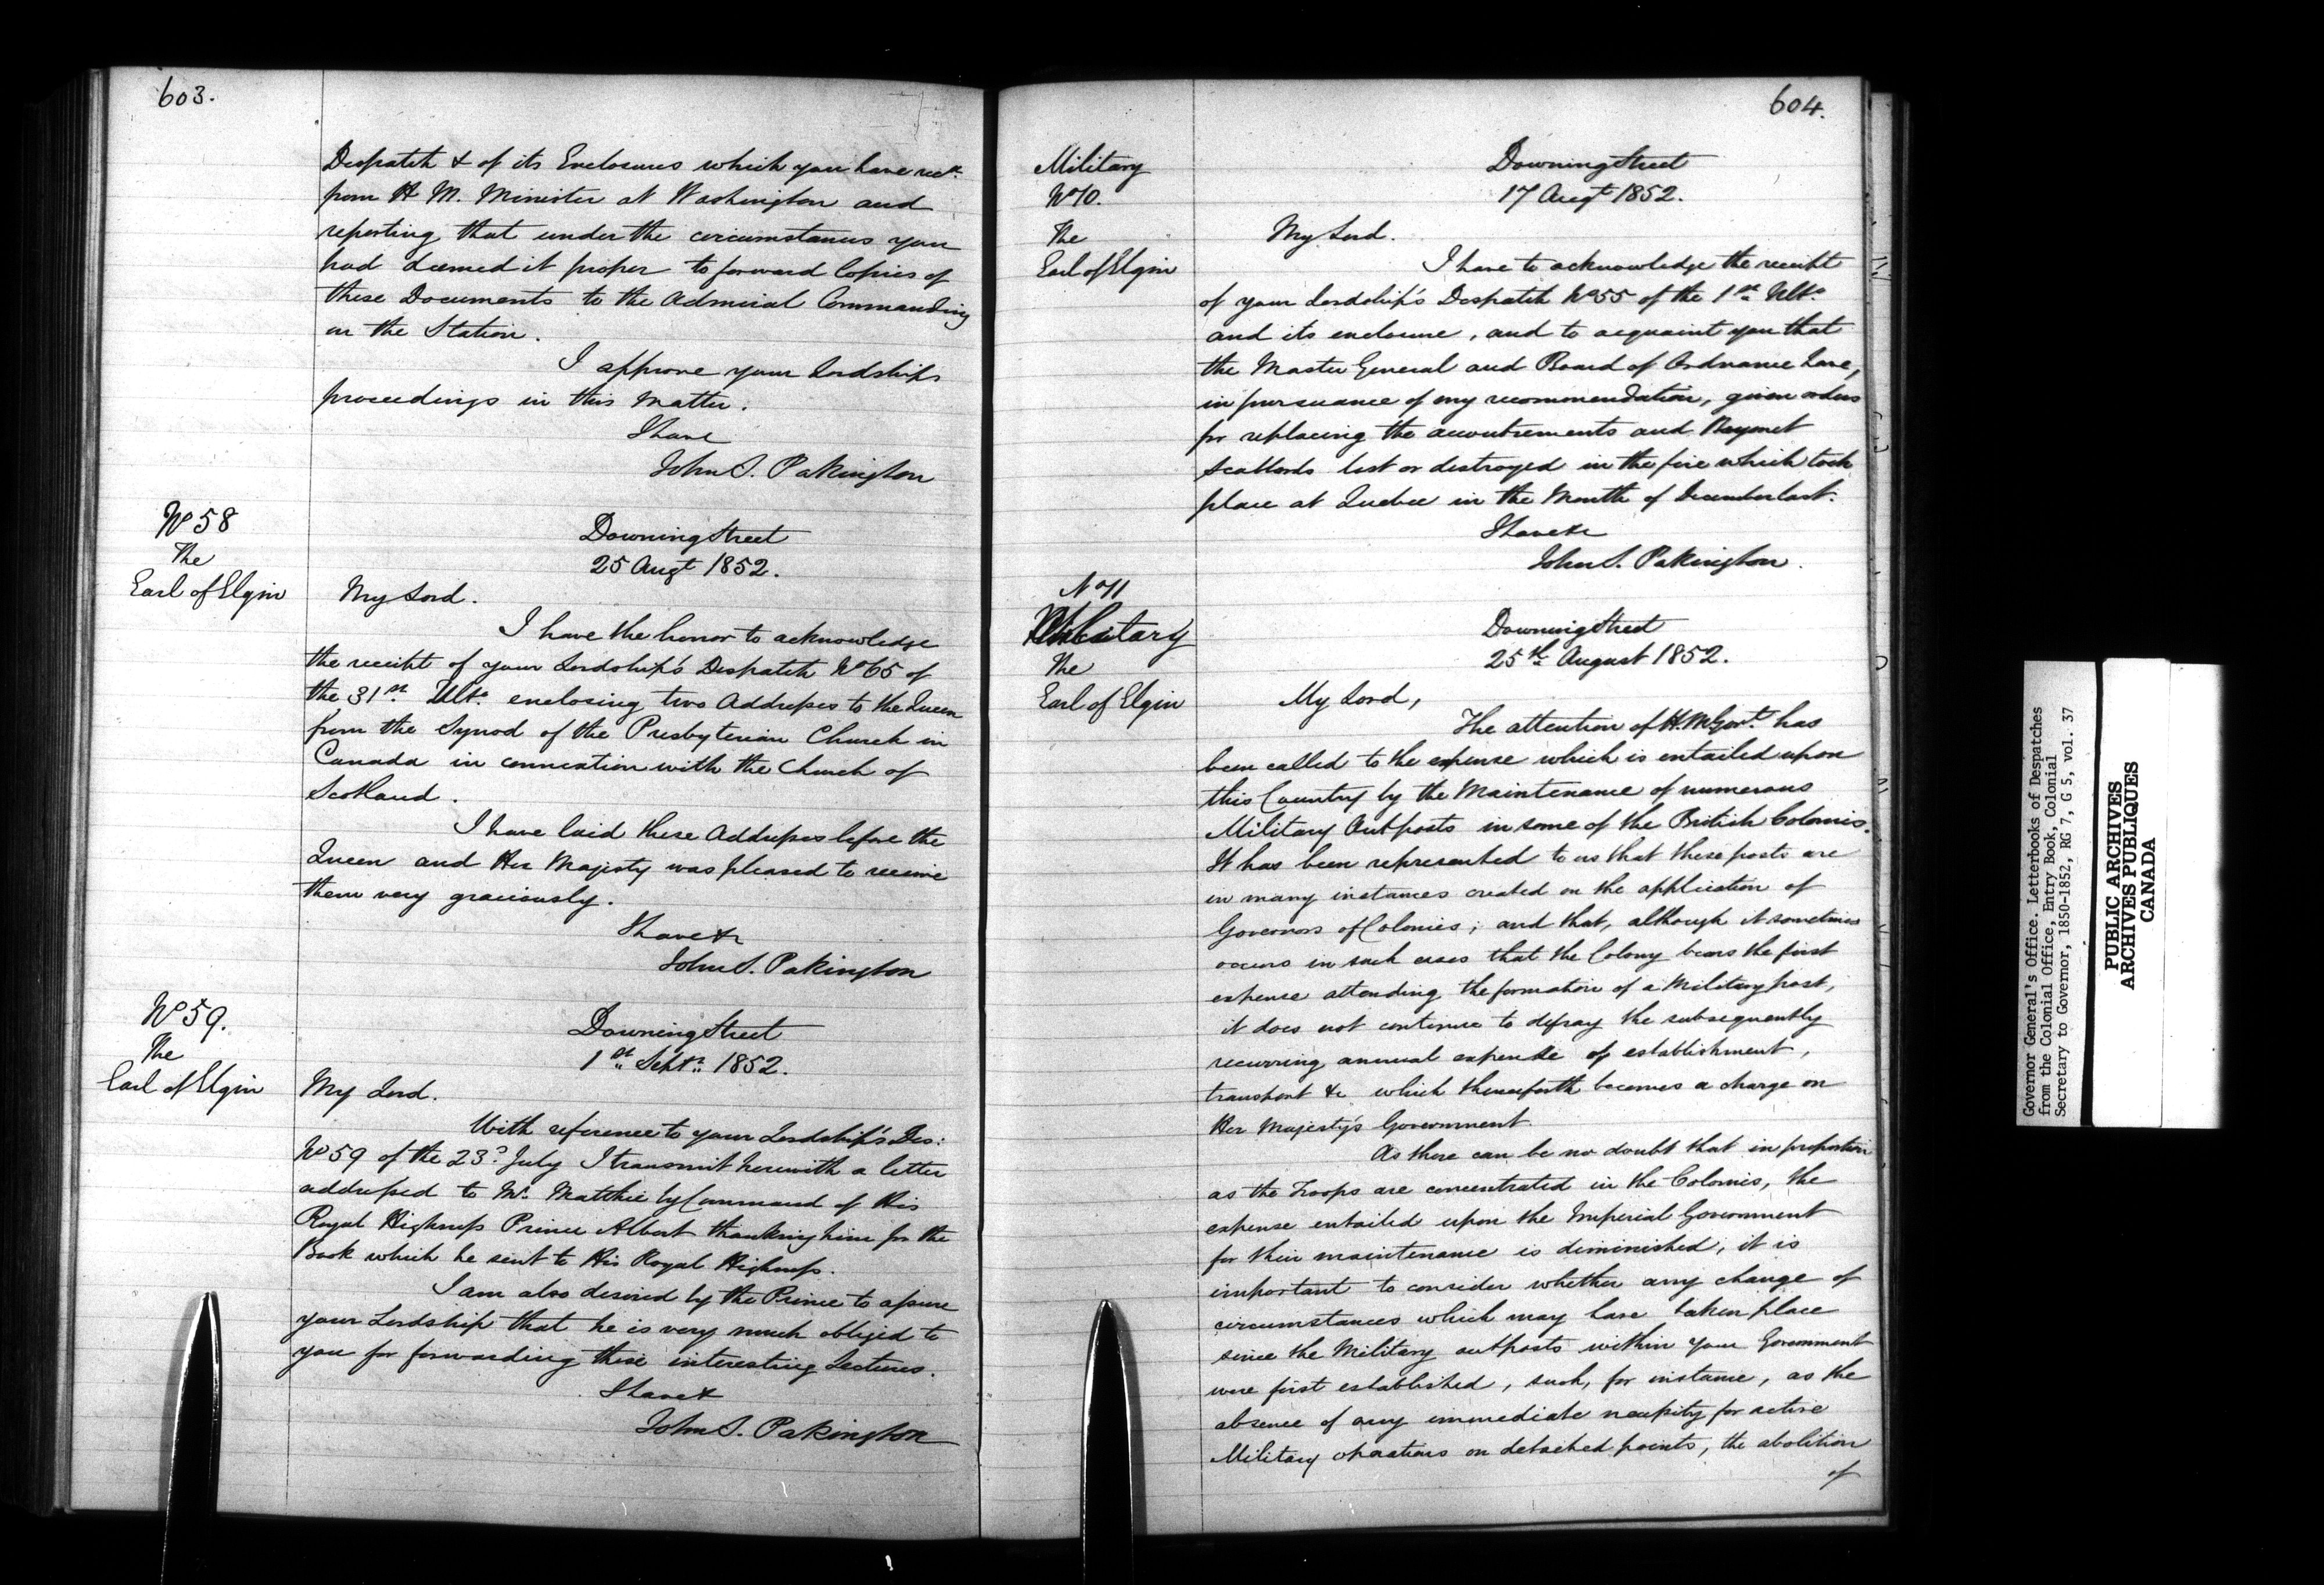 603.
Despatch & of its Enclosures which you have recd.
from H M. Minister at Washington and
reporting that under the circumstances you
had deemed it proper to forward Copies of
these Documents to the Admiral Commanding
on the Station.
I approve your Lordships
proceedings in this Matter.
I have
John S. Pakington
No 58
The
Earl of Elgin
Downing Street
25 Augt 1852.
My Lord.
I have the honor to acknowledge
the receipt of your Lordship's Despatch No 65 of
the 31st Ulto. enclosing two Addresses to the Queen
from the Synod of the Presbyterian Church in
Canada in connection with the Church of
Scotland.
I have laid these Addresses before the
Queen and Her Majesty was pleased to receive
them very graciously.
I have &c
John S. Pakington
No 59.
The
Earl of Elgin
Downing Street
1st Septr. 1852.
My Lord.
With reference to your Lordship's Des:
No 59 of the 23d July I transmit herewith a letter
addressed to Mr. Matthie by Command of His
Royal Highness Prince Albert thanking him for the
Book which he sent to His Royal Highness.
I am also desired by the Prince to assure
your Lordship that he is very much obliged to
you for forwarding these interesting Lectures.
I have &
John S. Pakington
604.
Military
No 10.
The
Earl of Elgin
Downing Street
17 Augt 1852.
My Lord.
I have to acknowledge the receipt
of your Lordship's Despatch No 55 of the 1st Ulto.
and its enclosure, and to acquaint you that
the Master General and Board of Ordnance have,
in pursuance of my recommendation, given orders
for replacing the accoutrements and Bayonet
Scabbards lost or destroyed in the fire which took
place at Quebec in the Month of December last.
I have &c
John S. Pakington.
No 11
Military
The
Earl of Elgin
Downing Street
25th August 1852.
My Lord,
The attention of H. M. Govt. has
been called to the expense which is entailed upon
this Country by the Maintenance of numerous
Military Outposts in some of the British Colonies.
It has been represented to us that these posts are
in many instances created on the application of
Governors of Colonies; and that, although it sometimes
occurs in such cases that the Colony bears the first
expense attending the formation of a Military post,
it does not continue to defray the subsequently
recurring annual expense of establishment,
transport &c which thenceforth becomes a charge on
Her Majesty's Government
As there can be no doubt that in proportion
as the Troops are concentrated in the Colonies, the
expense entailed upon the Imperial Government
for their maintenance is diminished, it is
important to consider whether any change of
circumstances which may have taken place
since the Military outposts within your Government
were first established, such, for instance, as the
absence of any immediate necessity for active
Military operations on detached points, the abolition
of
Governor General's Office. Letterbooks of Despatches
from the Colonial Office, Entry Book, Colonial
Secretary to Governor, 1850-1852, RG 7, G 5, vol. 37
PUBLIC ARCHIVES
ARCHIVES PUBLIQUES
CANADA